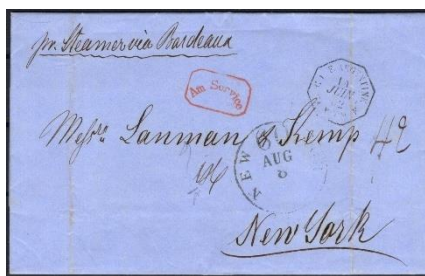 pr. Steamer via Bordeaux
Am. Service
JUIN
Messrs. Lanman & Kemp 42
NEW
AUG
8
New York